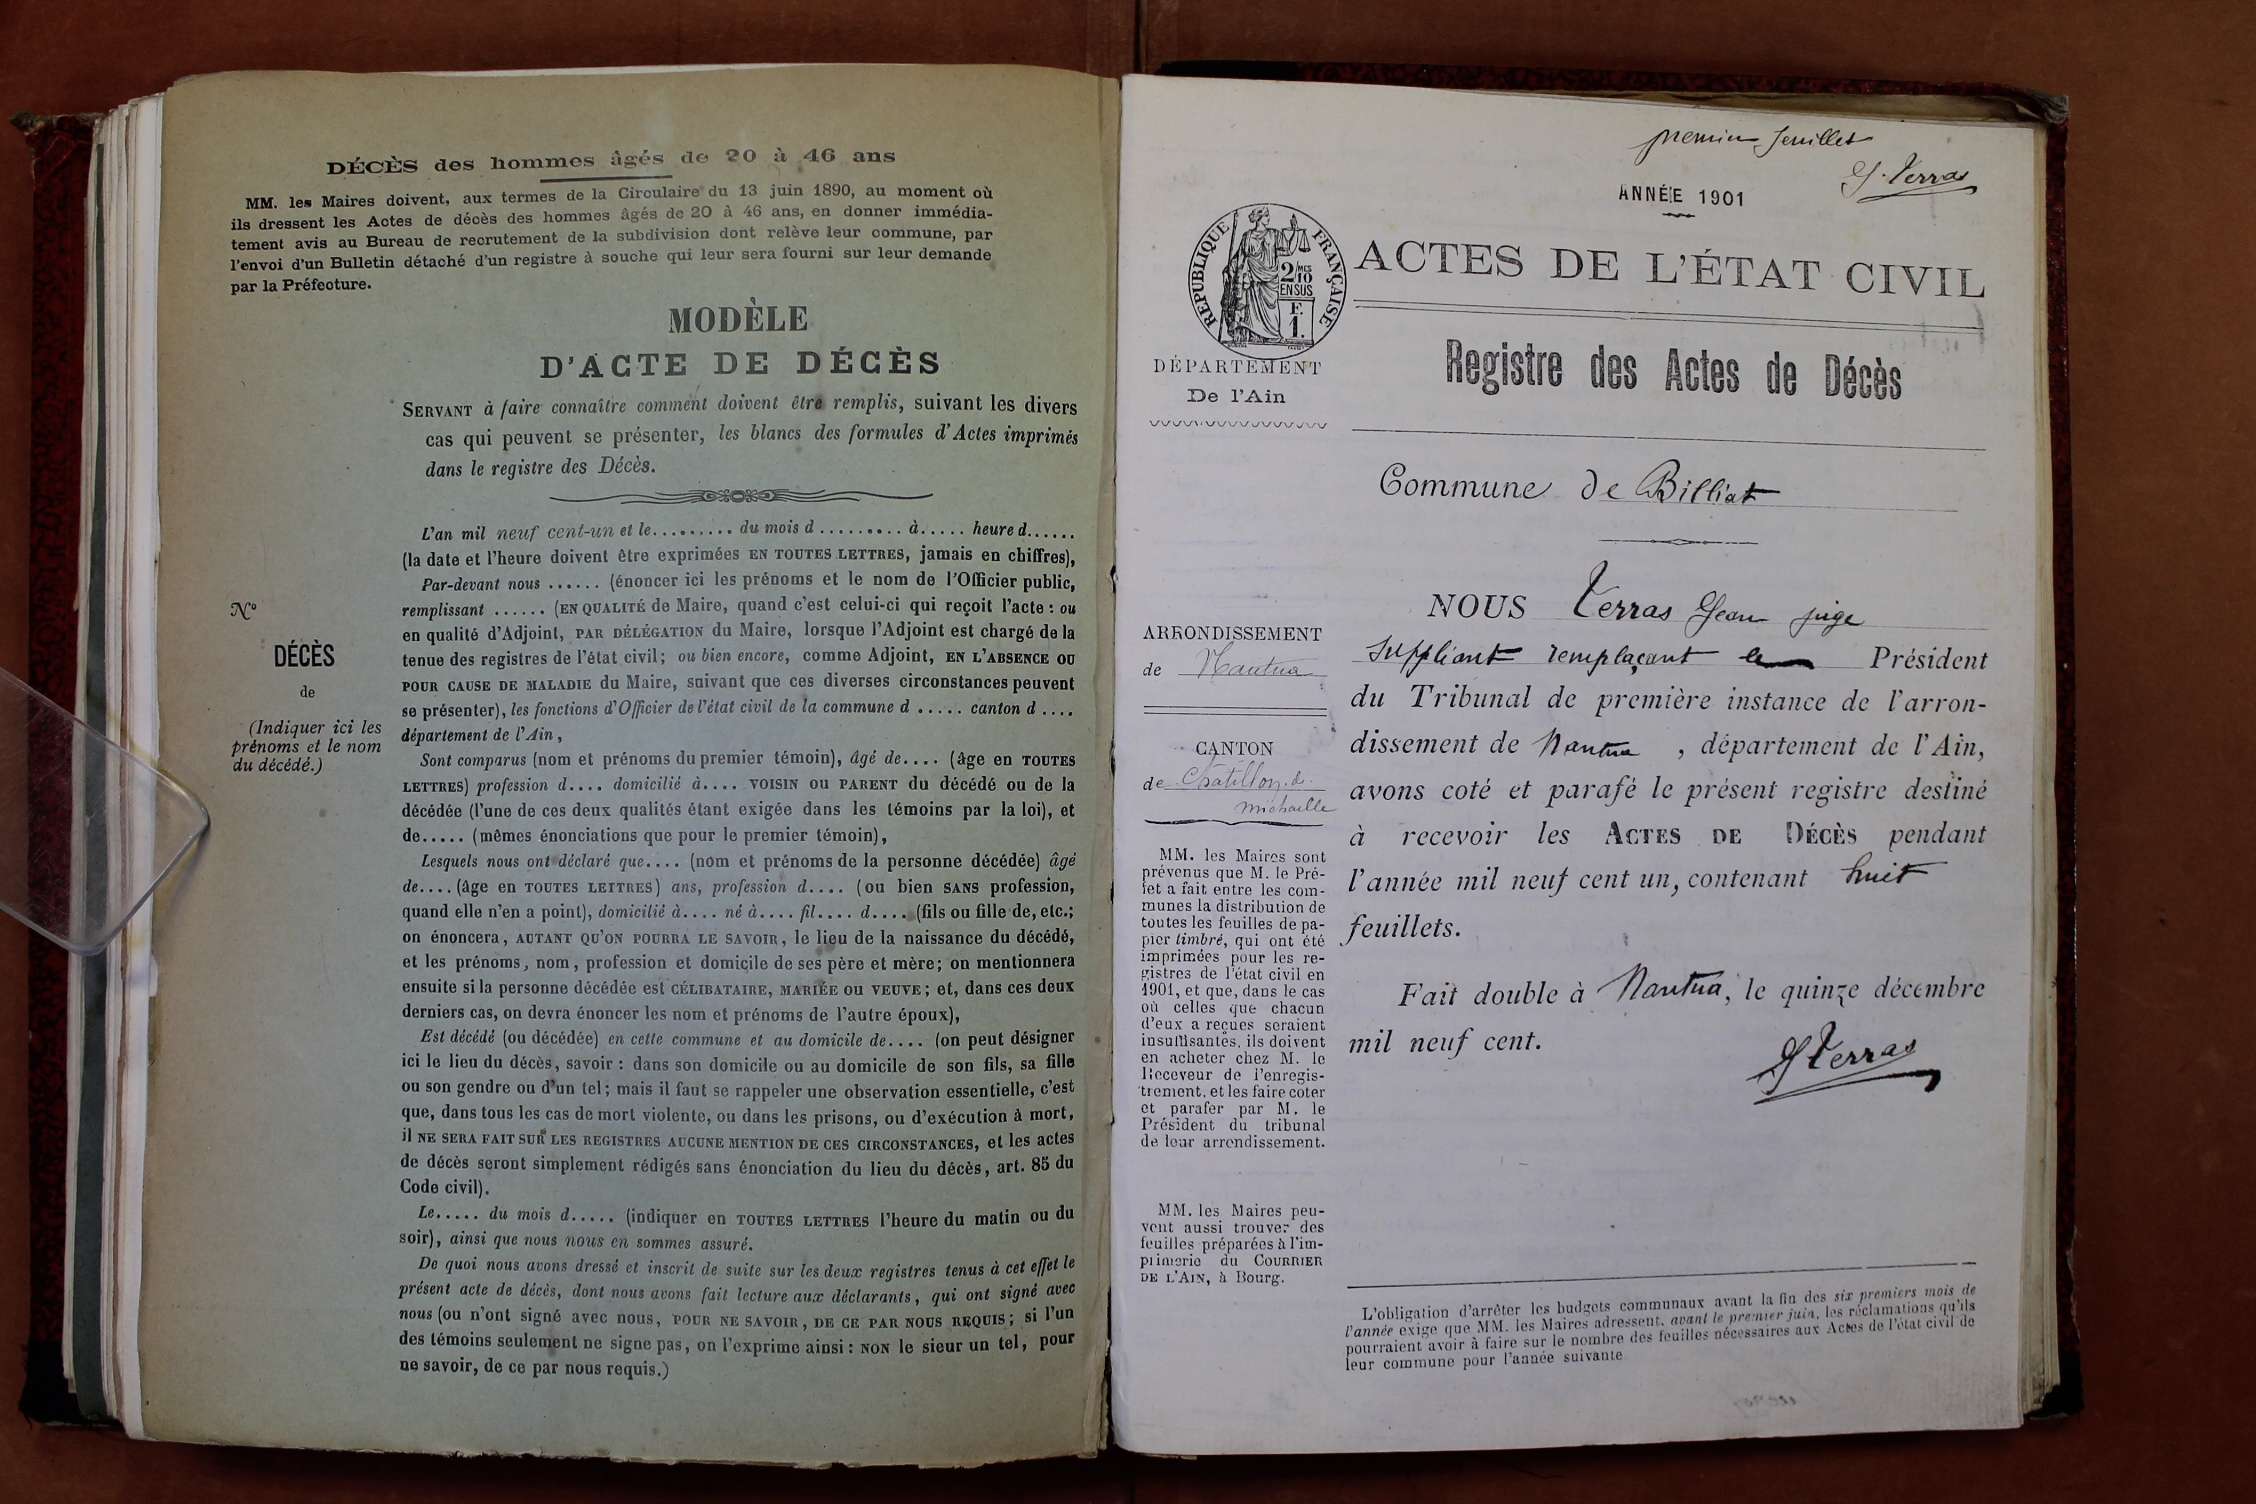 DÉCÈS des hommes âgés de 20 à 46 ans
MM. les Maires doivent, aux termes de la Circulaire du 13 juin 1890, au moment où
ils dressent les Actes de décès des hommes âgés de 20 à 46 ans, en donner immédia-
tement avis au Bureau de recrutement de la subdivision dont relève leur commune, par
l'envoi d'un Bulletin détaché d'un registre à souche qui leur sera fourni sur leur demande
par la Préfecture.
MODÈLE
D'ACTE DE DÉCÈS
SERVANT à faire connaître comment doivent être remplis, suivant les divers
cas qui peuvent se présenter, les blancs des formules d'Actes imprimés
dans le registre des Décès.
N°
DÉCÈS
de
(Indiquer ici les
prénoms et le nom
du décédé.)
L'an mil neuf cent-un et le......... du mois d ......... à..... heure d......
(la date et l'heure doivent être exprimées EN TOUTES LETTRES, jamais en chiffres),
Par-devant nous ...... (énoncer ici les prénoms et le nom de l'Officier public,
remplissant ...... (EN QUALITÉ de Maire, quand c'est celui-ci qui reçoit l'acte : ou
en qualité d'Adjoint, PAR DÉLÉGATION du Maire, lorsque l'Adjoint est chargé de la
tenue des registres de l'état civil; ou bien encore, comme Adjoint, EN L'ABSENCE OU
POUR CAUSE DE MALADIE du Maire, suivant que ces diverses circonstances peuvent
se présenter), les fonctions d'Officier de l'état civil de la commune d ..... canton d ....
département de l'Ain,
Sont comparus (nom et prénoms du premier témoin), âgé de.... (âge en TOUTES
LETTRES) profession d.... domicilié à.... VOISIN OU PARENT du décédé ou de la
décédée (l'une de ces deux qualités étant exigée dans les témoins par la loi), et
de..... (mêmes énonciations que pour le premier témoin),
Lesquels nous ont déclaré que.... (nom et prénoms de la personne décédée) âgé
de.... (âge en TOUTES LETTRES) ans, profession d.... (ou bien SANS profession,
quand elle n'en a point), domicilié à.... né à.... fil.... d.... (fils ou fille de, etc.;
on énoncera, AUTANT QU'ON POURRA LE SAVOIR, le lieu de la naissance du décédé,
et les prénoms, nom, profession et domicile de ses père et mère; on mentionnera
ensuite si la personne décédée est CÉLIBATAIRE, MARIÉE OU VEUVE; et, dans ces deux
derniers cas, on devra énoncer les nom et prénoms de l'autre époux),
Est décédé (ou décédée) en cette commune et au domicile de.... (on peut désigner
ici le lieu du décès, savoir : dans son domicile ou au domicile de son fils, sa fille
ou son gendre ou d'un tel; mais il faut se rappeler une observation essentielle, c'est
que, dans tous les cas de mort violente, ou dans les prisons, ou d'exécution à mort,
il NE SERA FAIT SUR LES REGISTRES AUCUNE MENTION DE CES CIRCONSTANCES, et les actes
de décès seront simplement rédigés sans énonciation du lieu du décès, art. 85 du
Code civil).
Le..... du mois d..... (indiquer en TOUTES LETTRES l'heure du matin ou du
soir), ainsi que nous nous en sommes assuré.
De quoi nous avons dressé et inscrit de suite sur les deux registres tenus à cet effet le
présent acte de décès, dont nous avons fait lecture aux déclarants, qui ont signé avec
nous (ou n'ont signé avec nous, POUR NE SAVOIR, DE CE PAR NOUS REQUIS; si l'un
des témoins seulement ne signe pas, on l'exprime ainsi : NON le sieur un tel, pour
ne savoir, de ce par nous requis.)
premier feuillet
J. Terras
ANNÉE 1901
RÉPUBLIQUE FRANÇAISE
2/10 MES
EN SUS
F.
1.
ACTES DE L'ÉTAT CIVIL
DÉPARTEMENT
De l'Ain
Registre des Actes de Décès
Commune de Billiat
ARRONDISSEMENT
de Nantua
CANTON
de Châtillon-de-
Michaille
MM. les Maires sont
prévenus que M. le Pré-
fet a fait entre les com-
munes la distribution de
toutes les feuilles de pa-
pier timbré, qui ont été
imprimées pour les re-
gistres de l'état civil en
1901, et que, dans le cas
où celles que chacun
d'eux a reçues seraient
insuffisantes, ils doivent
en acheter chez M. le
Receveur de l'enregis-
trement, et les faire coter
et parafer par M. le
Président du tribunal
de leur arrondissement.
MM. les Maires peu-
vent aussi trouver des
feuilles préparées à l'im-
primerie du COURRIER
DE L'AIN, à Bourg.
NOUS Terras Jean juge
suppléant remplaçant le Président
du Tribunal de première instance de l'arron-
dissement de Nantua , département de l'Ain,
avons coté et parafé le présent registre destiné
à recevoir les ACTES DE DÉCÈS pendant
l'année mil neuf cent un, contenant huit
feuillets.
Fait double à Nantua, le quinze décembre
mil neuf cent.
J Terras
L'obligation d'arrêter les budgets communaux avant la fin des six premiers mois de
l'année exige que MM. les Maires adressent, avant le premier juin, les réclamations qu'ils
pourraient avoir à faire sur le nombre des feuilles nécessaires aux Actes de l'état civil de
leur commune pour l'année suivante